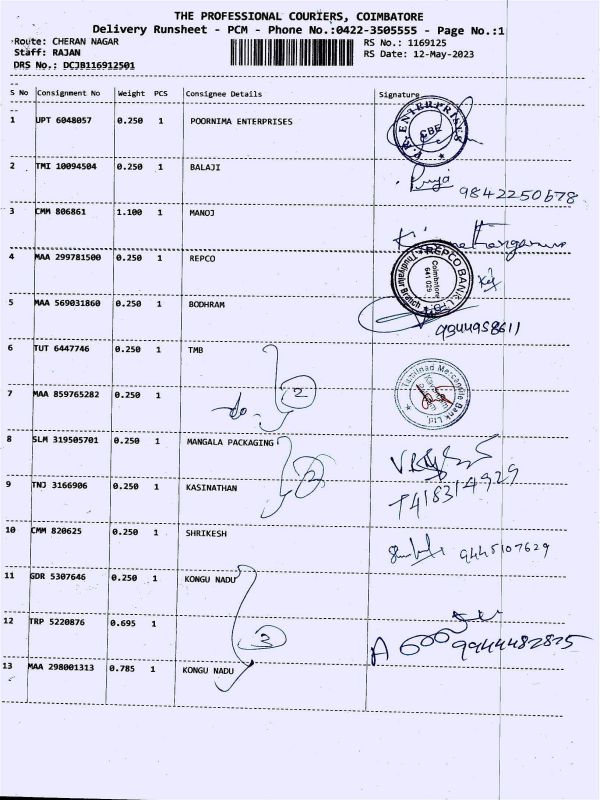 THE PROFESSIONAL COURIERS, COIMBATORE
Delivery Runsheet - PCM - Phone No.:0422-3505555 - Page No.:1
Route: CHERAN NAGAR RS No.: 1169125
Staff: RAJAN RS Date: 12-May-2023
DRS No.: DCJB116912501
S No Consignment No Weight PCS Consignee Details Signature
1 UPT 6048057 0.250 1 POORNIMA ENTERPRISES
ENTERPRISES
CBE
2 TMI 10094504 0.250 1 BALAJI
Priya 9842250678
3 CMM 806861 1.100 1 MANOJ
4 MAA 299781500 0.250 1 REPCO
REPCO BANK LTD
Coimbatore
641 029
Thudiyalur Branch
5 MAA 569031860 0.250 1 BODHRAM
9944958611
6 TUT 6447746 0.250 1 TMB
Tamilnad Mercantile Bank Ltd
7 MAA 859765282 0.250 1
do. 2
8 SLM 319505701 0.250 1 MANGALA PACKAGING
9 TNJ 3166906 0.250 1 KASINATHAN
2
7418314929
10 CMM 820625 0.250 1 SHRIKESH
9445107629
11 GDR 5307646 0.250 1 KONGU NADU
12 TRP 5220876 0.695 1
3
9944482825
13 MAA 298001313 0.785 1 KONGU NADU